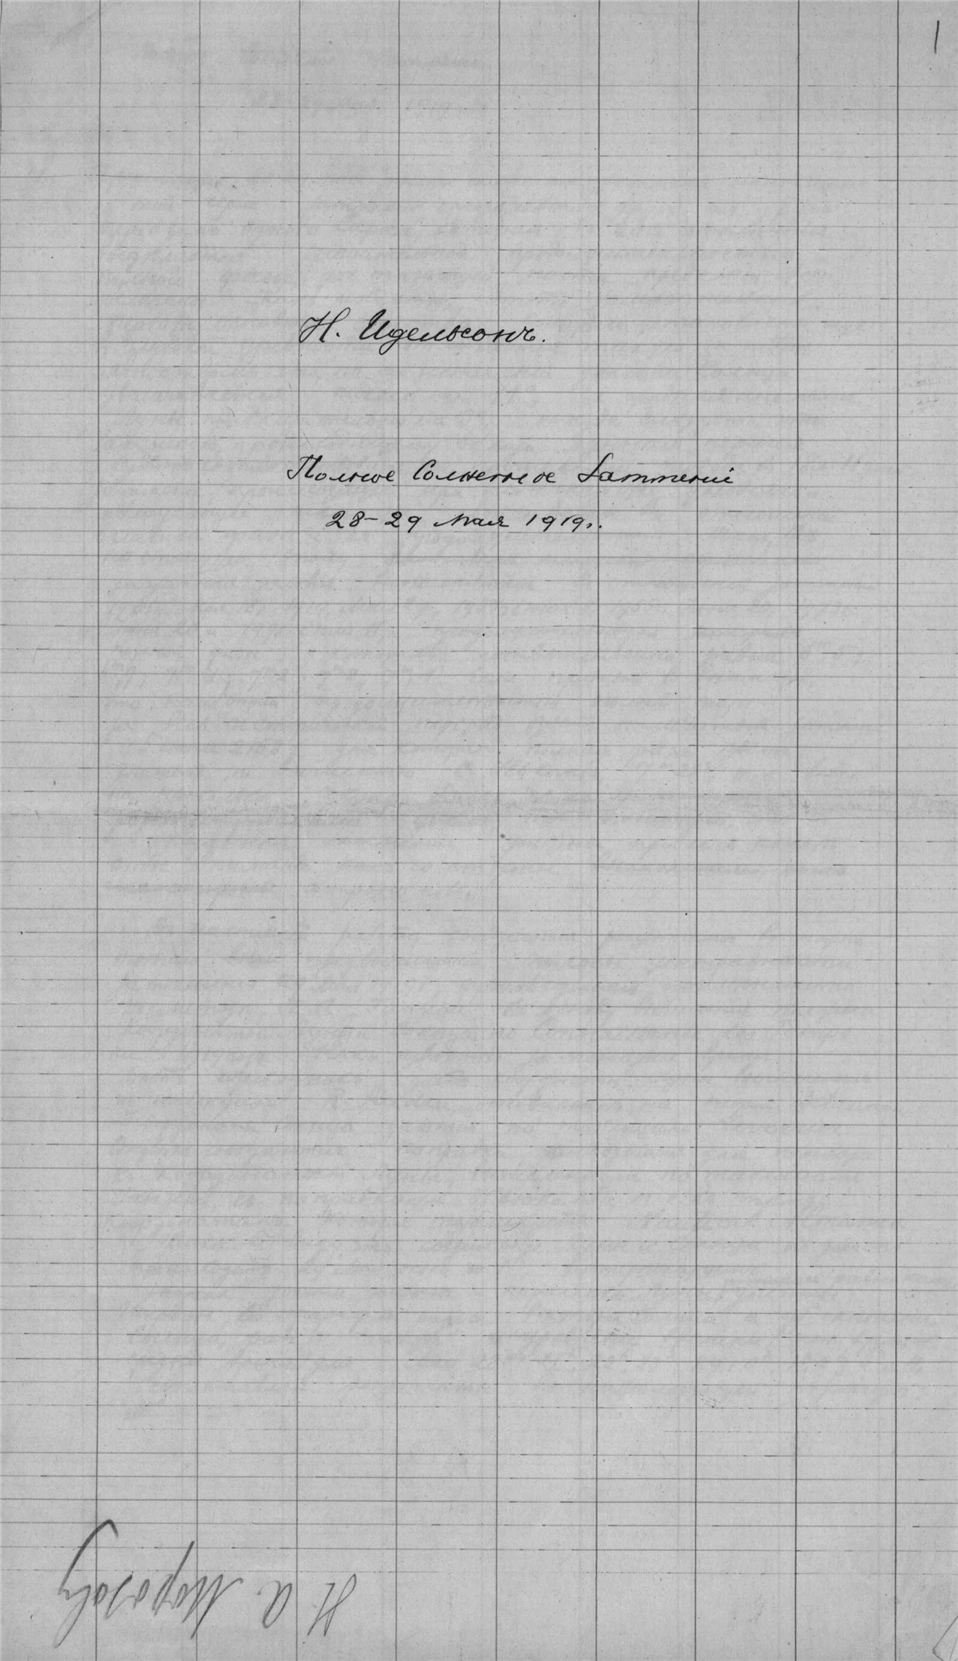 1
Н. Идельсонъ.
Полное Солнечное Затменіе
28-29 мая 1919г.
Н. А. Морозову